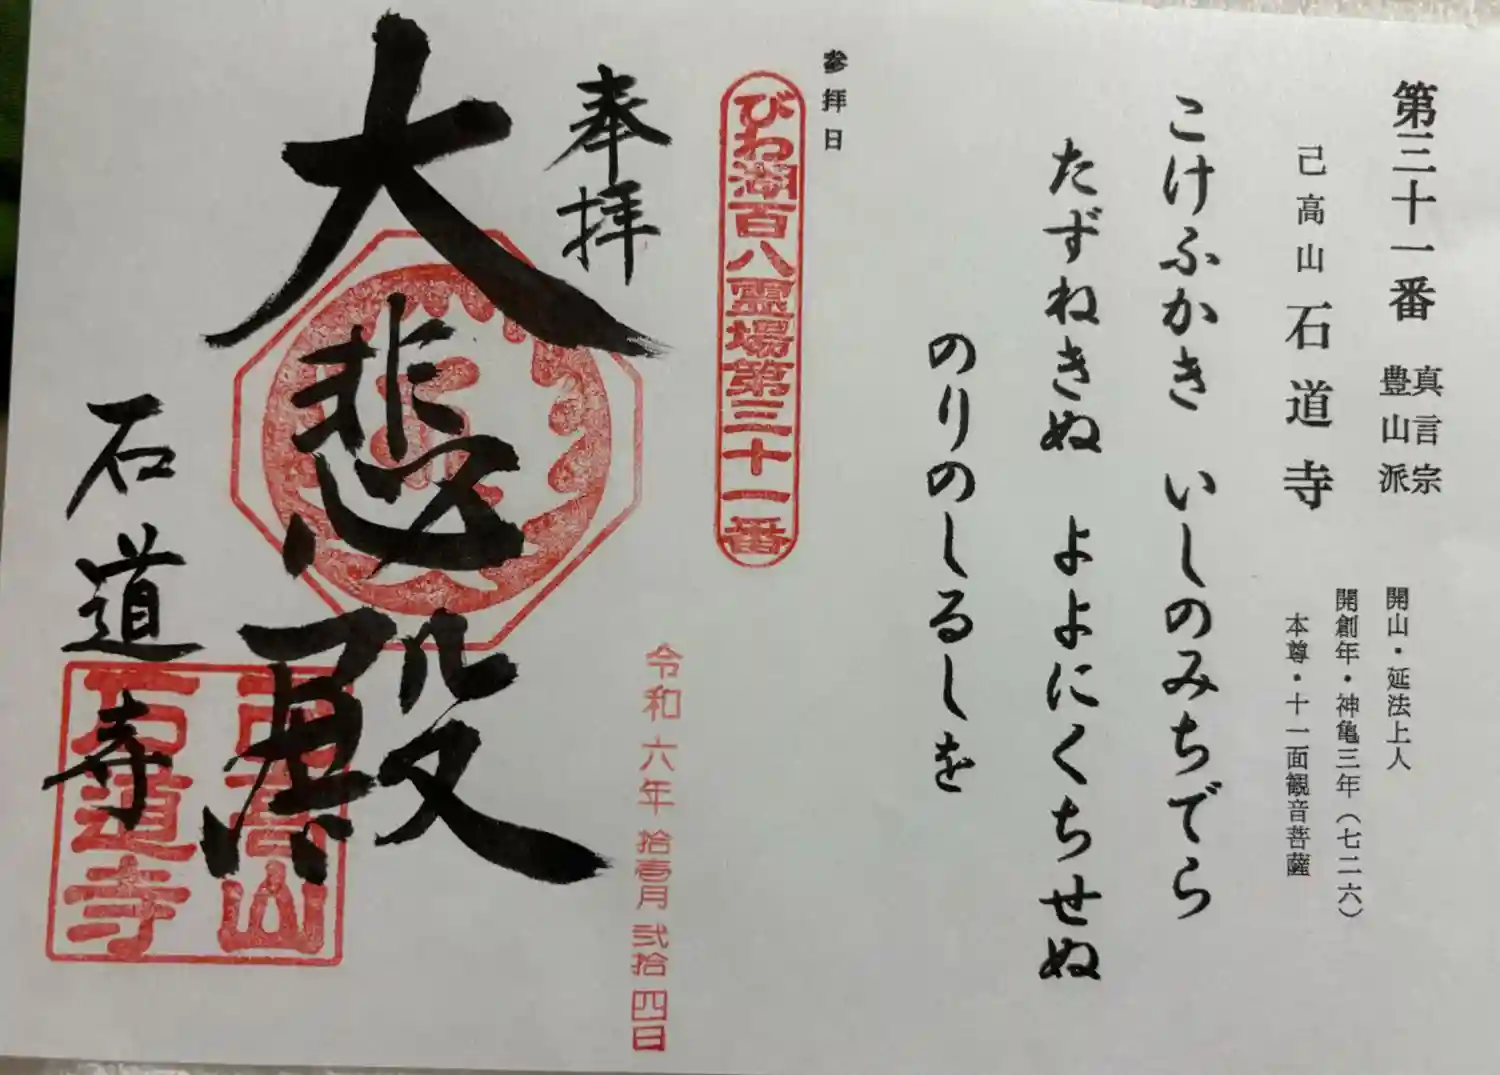 第三十一番
真言宗
豊山派
己高山 石道寺
開山・延法上人
開創年・神亀三年(七二六)
本尊・十一面観音菩薩
こけふかき いしのみちでら
たずねきぬ よよにくちせぬ
のりのしるしを
参拝日
びわ湖百八霊場第三十一番
令和六年拾壱月弐拾四日
奉拝
大悲殿
石道寺
己高山
石道寺